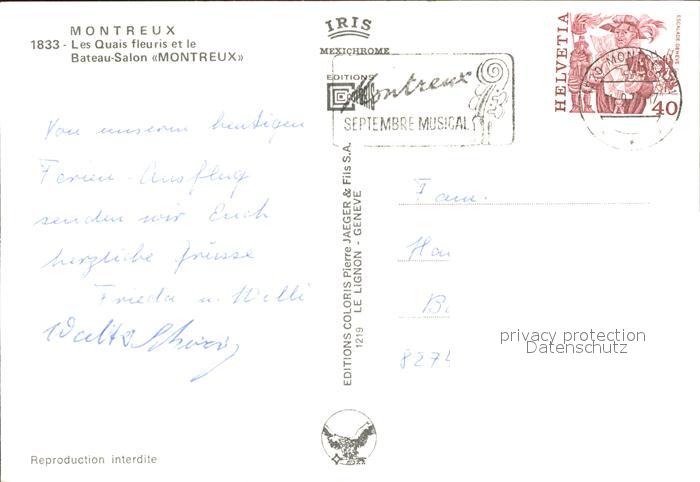 MONTREUX
1833 - Les Quais fleuris et le
Bateau-Salon «MONTREUX»
IRIS
MEXICHROME
EDITIONS
Montreux
SEPTEMBRE MUSICAL
HELVETIA
ESCALADE GENÈVE
40
Von unserem heutigen
Ferien-Ausflug
senden wir Euch
herzliche Grüsse
Frieda u. Willi
EDITIONS COLORIS Pierre JAEGER & Fils S.A.
1219 LE LIGNON - GENEVE
Fam.
8274
privacy protection
Datenschutz
Reproduction interdite